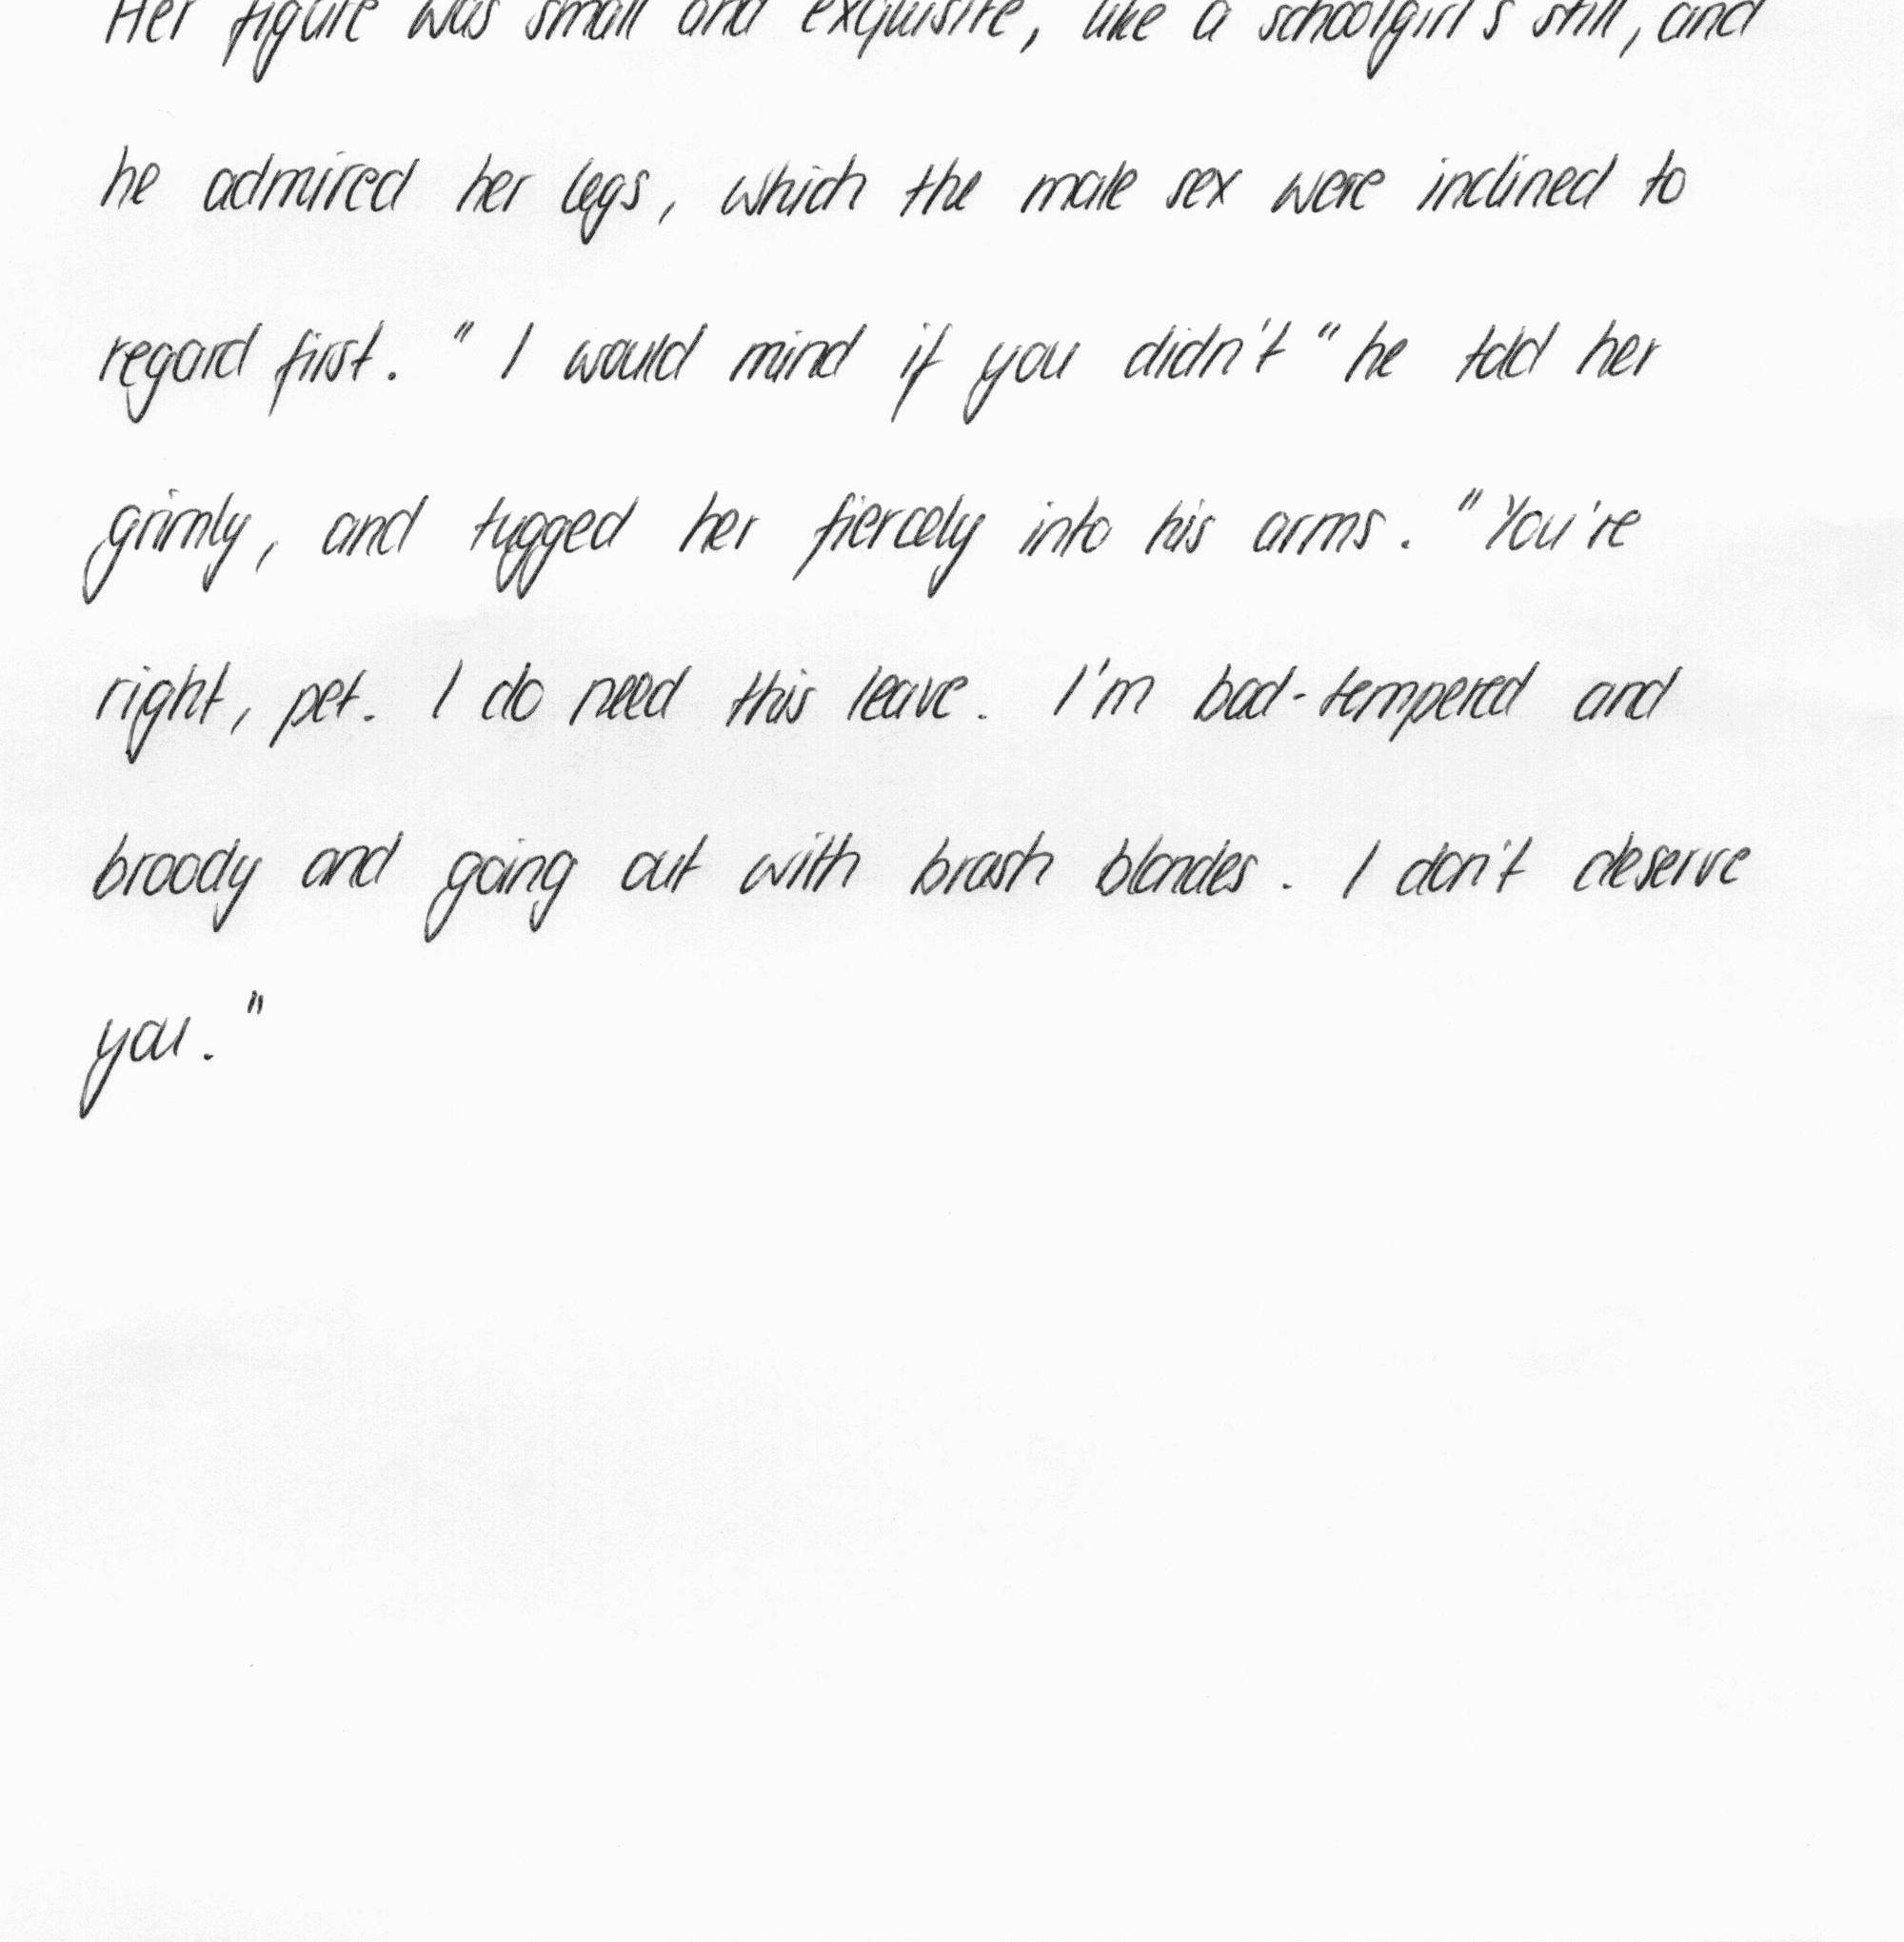 Her figure was small and exquisite, like a schoolgirl's still, and
he admired her legs, which the male sex were inclined to
regard first. " I would mind if you didn't " he told her
grimly, and tugged her fiercely into his arms. "You're
right, pet. I do need this leave. I'm bad-tempered and
broody and going out with brash blondes. I don't deserve
you."